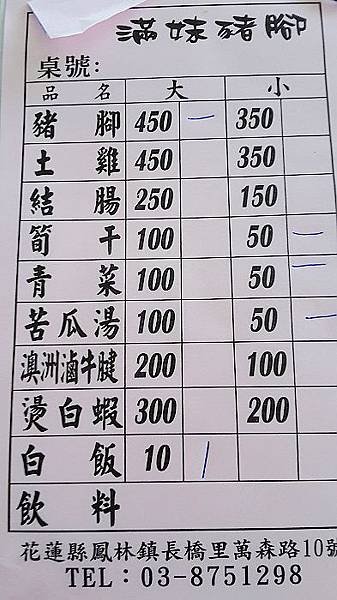 滿妹豬腳
桌號:
品名 大 小
豬腳 450 一 350
土雞 450 350
結腸 250 150
筍干 100 50 一
青菜 100 50 一
苦瓜湯 100 50 一
澳洲滷牛腱 200 100
燙白蝦 300 200
白飯 10 /
飲料
花蓮縣鳳林鎮長橋里萬森路10號
TEL：03-8751298